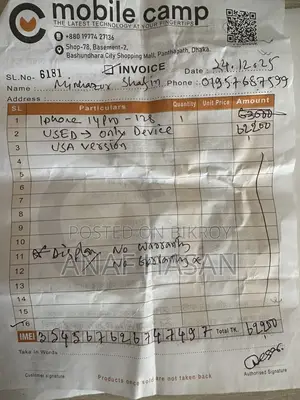 mobile camp
THE LATEST TECHNOLOGY AT YOUR FINGERTIPS
+880 19774 27136
Shop-78, Basement-2,
Bashundhara City Shopping Mall, Panthapath, Dhaka
SL.No: 6181 INVOICE Date: 24.12.25
Name: Minhazur Phone: 01957687599
Address
SL. Particulars Quantity Unit Price Amount
1 Iphone 14 Pro - 128 1 63000
2 USED → Only Device 62200
3 USA version
4
5
6
7
8
9
POSTED ON BIKROY
10 Display No Warranty
11 No
ANAF HASAN
12
13
14
15
16
IMEI Total TK.
Take in Words
Customer signature Authorised Signature
Products once sold are not taken back.